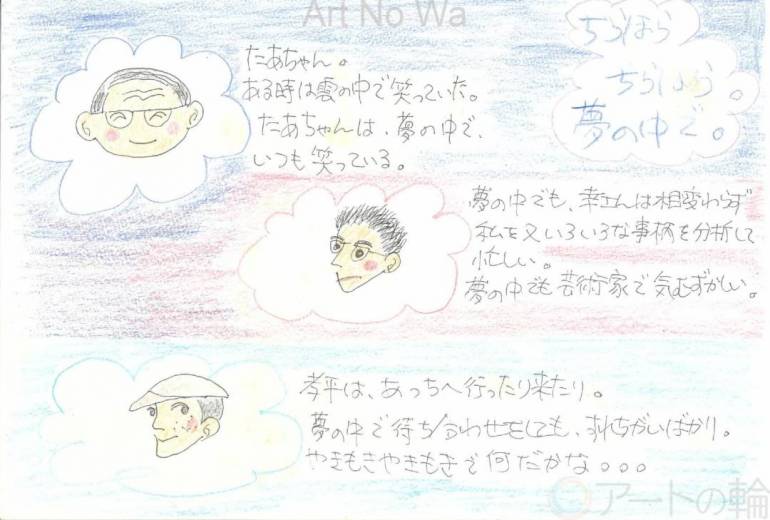 Art No Wa
ちらほら
ちらほら。
夢の中で。
たあちゃん。
ある時は雲の中で笑っていた。
たあちゃんは、夢の中で、
いつも笑っている。
夢の中でも、幸さんは相変わらず
私を又いろいろな事柄を分析して
忙しい。
夢の中でも芸術家で気むずかしい。
孝平は、あっちへ行ったり来たり。
夢の中で待ち合わせをしても、すれちがいばかり。
やきもきやきもきで何だかな。。。
アートの輪